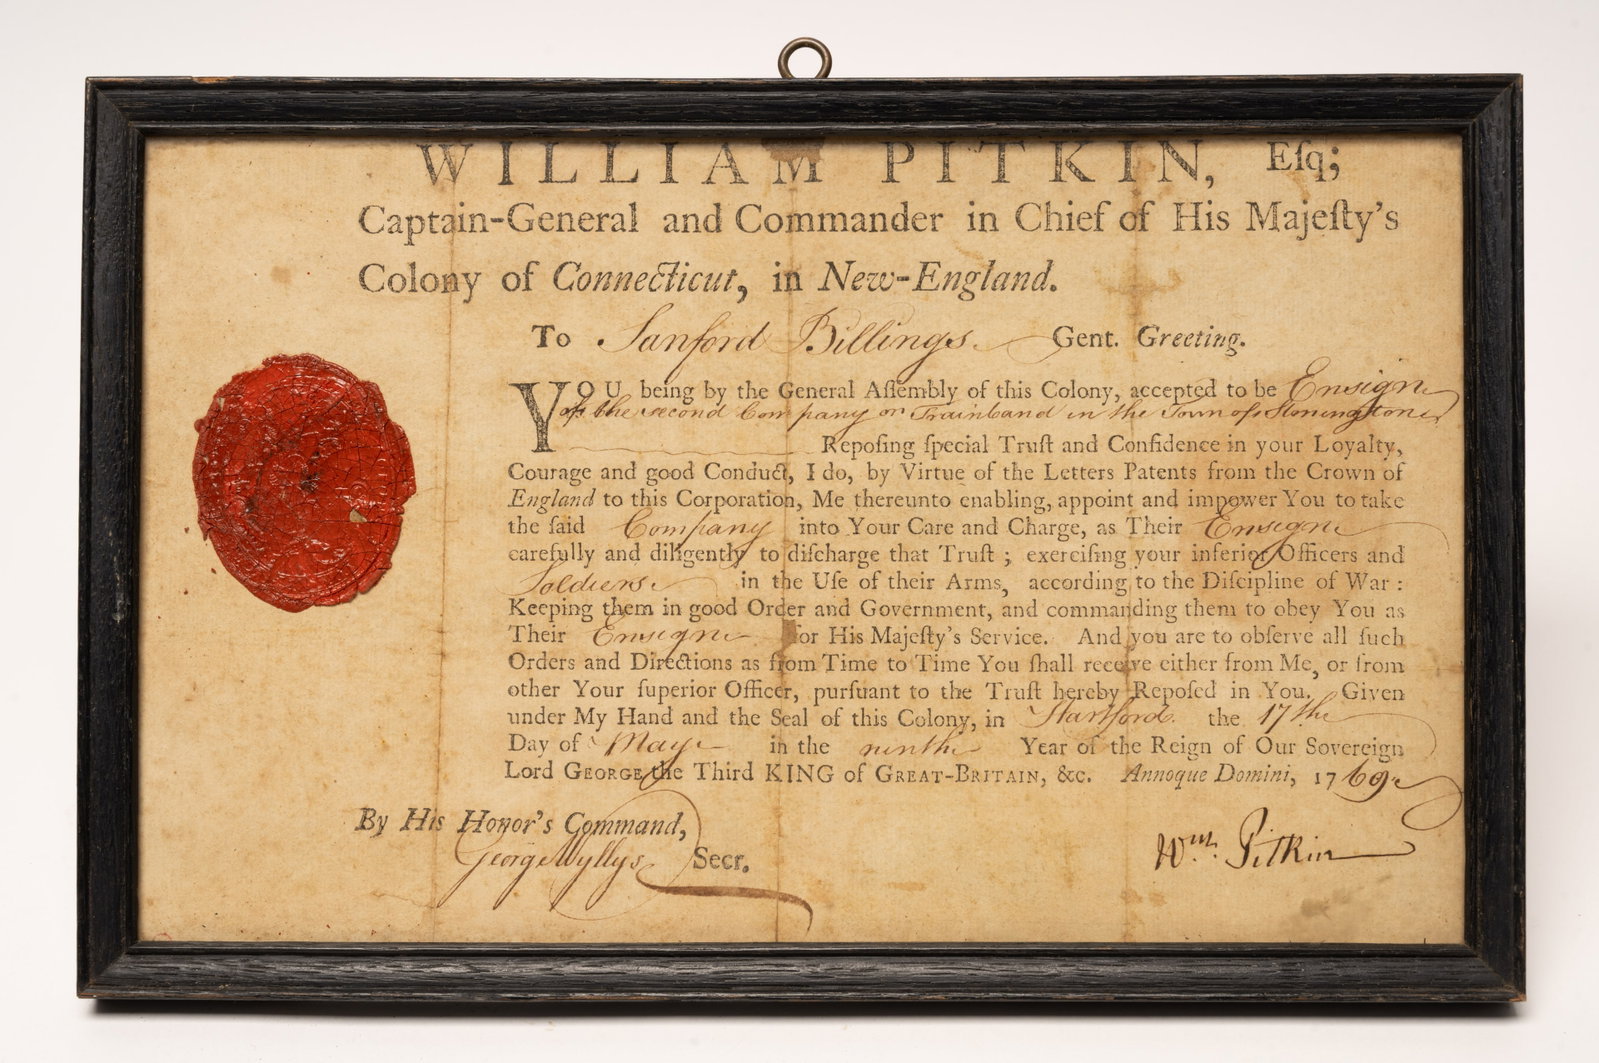 WILLIAM PITKIN, Eſq;
Captain-General and Commander in Chief of His Majeſty's
Colony of Connecticut, in New-England.
To Sanford Billings Gent. Greeting.
YOU being by the General Aſſembly of this Colony, accepted to be Ensign
of the second Company or Trainband in the Town of Stonington
Repoſing ſpecial Truſt and Confidence in your Loyalty,
Courage and good Conduct, I do, by Virtue of the Letters Patents from the Crown of
England to this Corporation, Me thereunto enabling, appoint and impower You to take
the ſaid Company into Your Care and Charge, as Their Ensign
carefully and diligently to diſcharge that Truſt ; exerciſing your inferior Officers and
Soldiers in the Uſe of their Arms, according to the Diſcipline of War :
Keeping them in good Order and Government, and commanding them to obey You as
Their Ensign for His Majeſty's Service. And you are to obſerve all ſuch
Orders and Directions as from Time to Time You ſhall receive either from Me, or from
other Your ſuperior Officer, purſuant to the Truſt hereby Repoſed in You. Given
under My Hand and the Seal of this Colony, in Hartford the 17th
Day of May in the ninth Year of the Reign of Our Sovereign
Lord GEORGE the Third KING of GREAT-BRITAIN, &c. Annoque Domini, 1769
By His Honor's Command,
George Wyllys Secr.
Wm. Pitkin